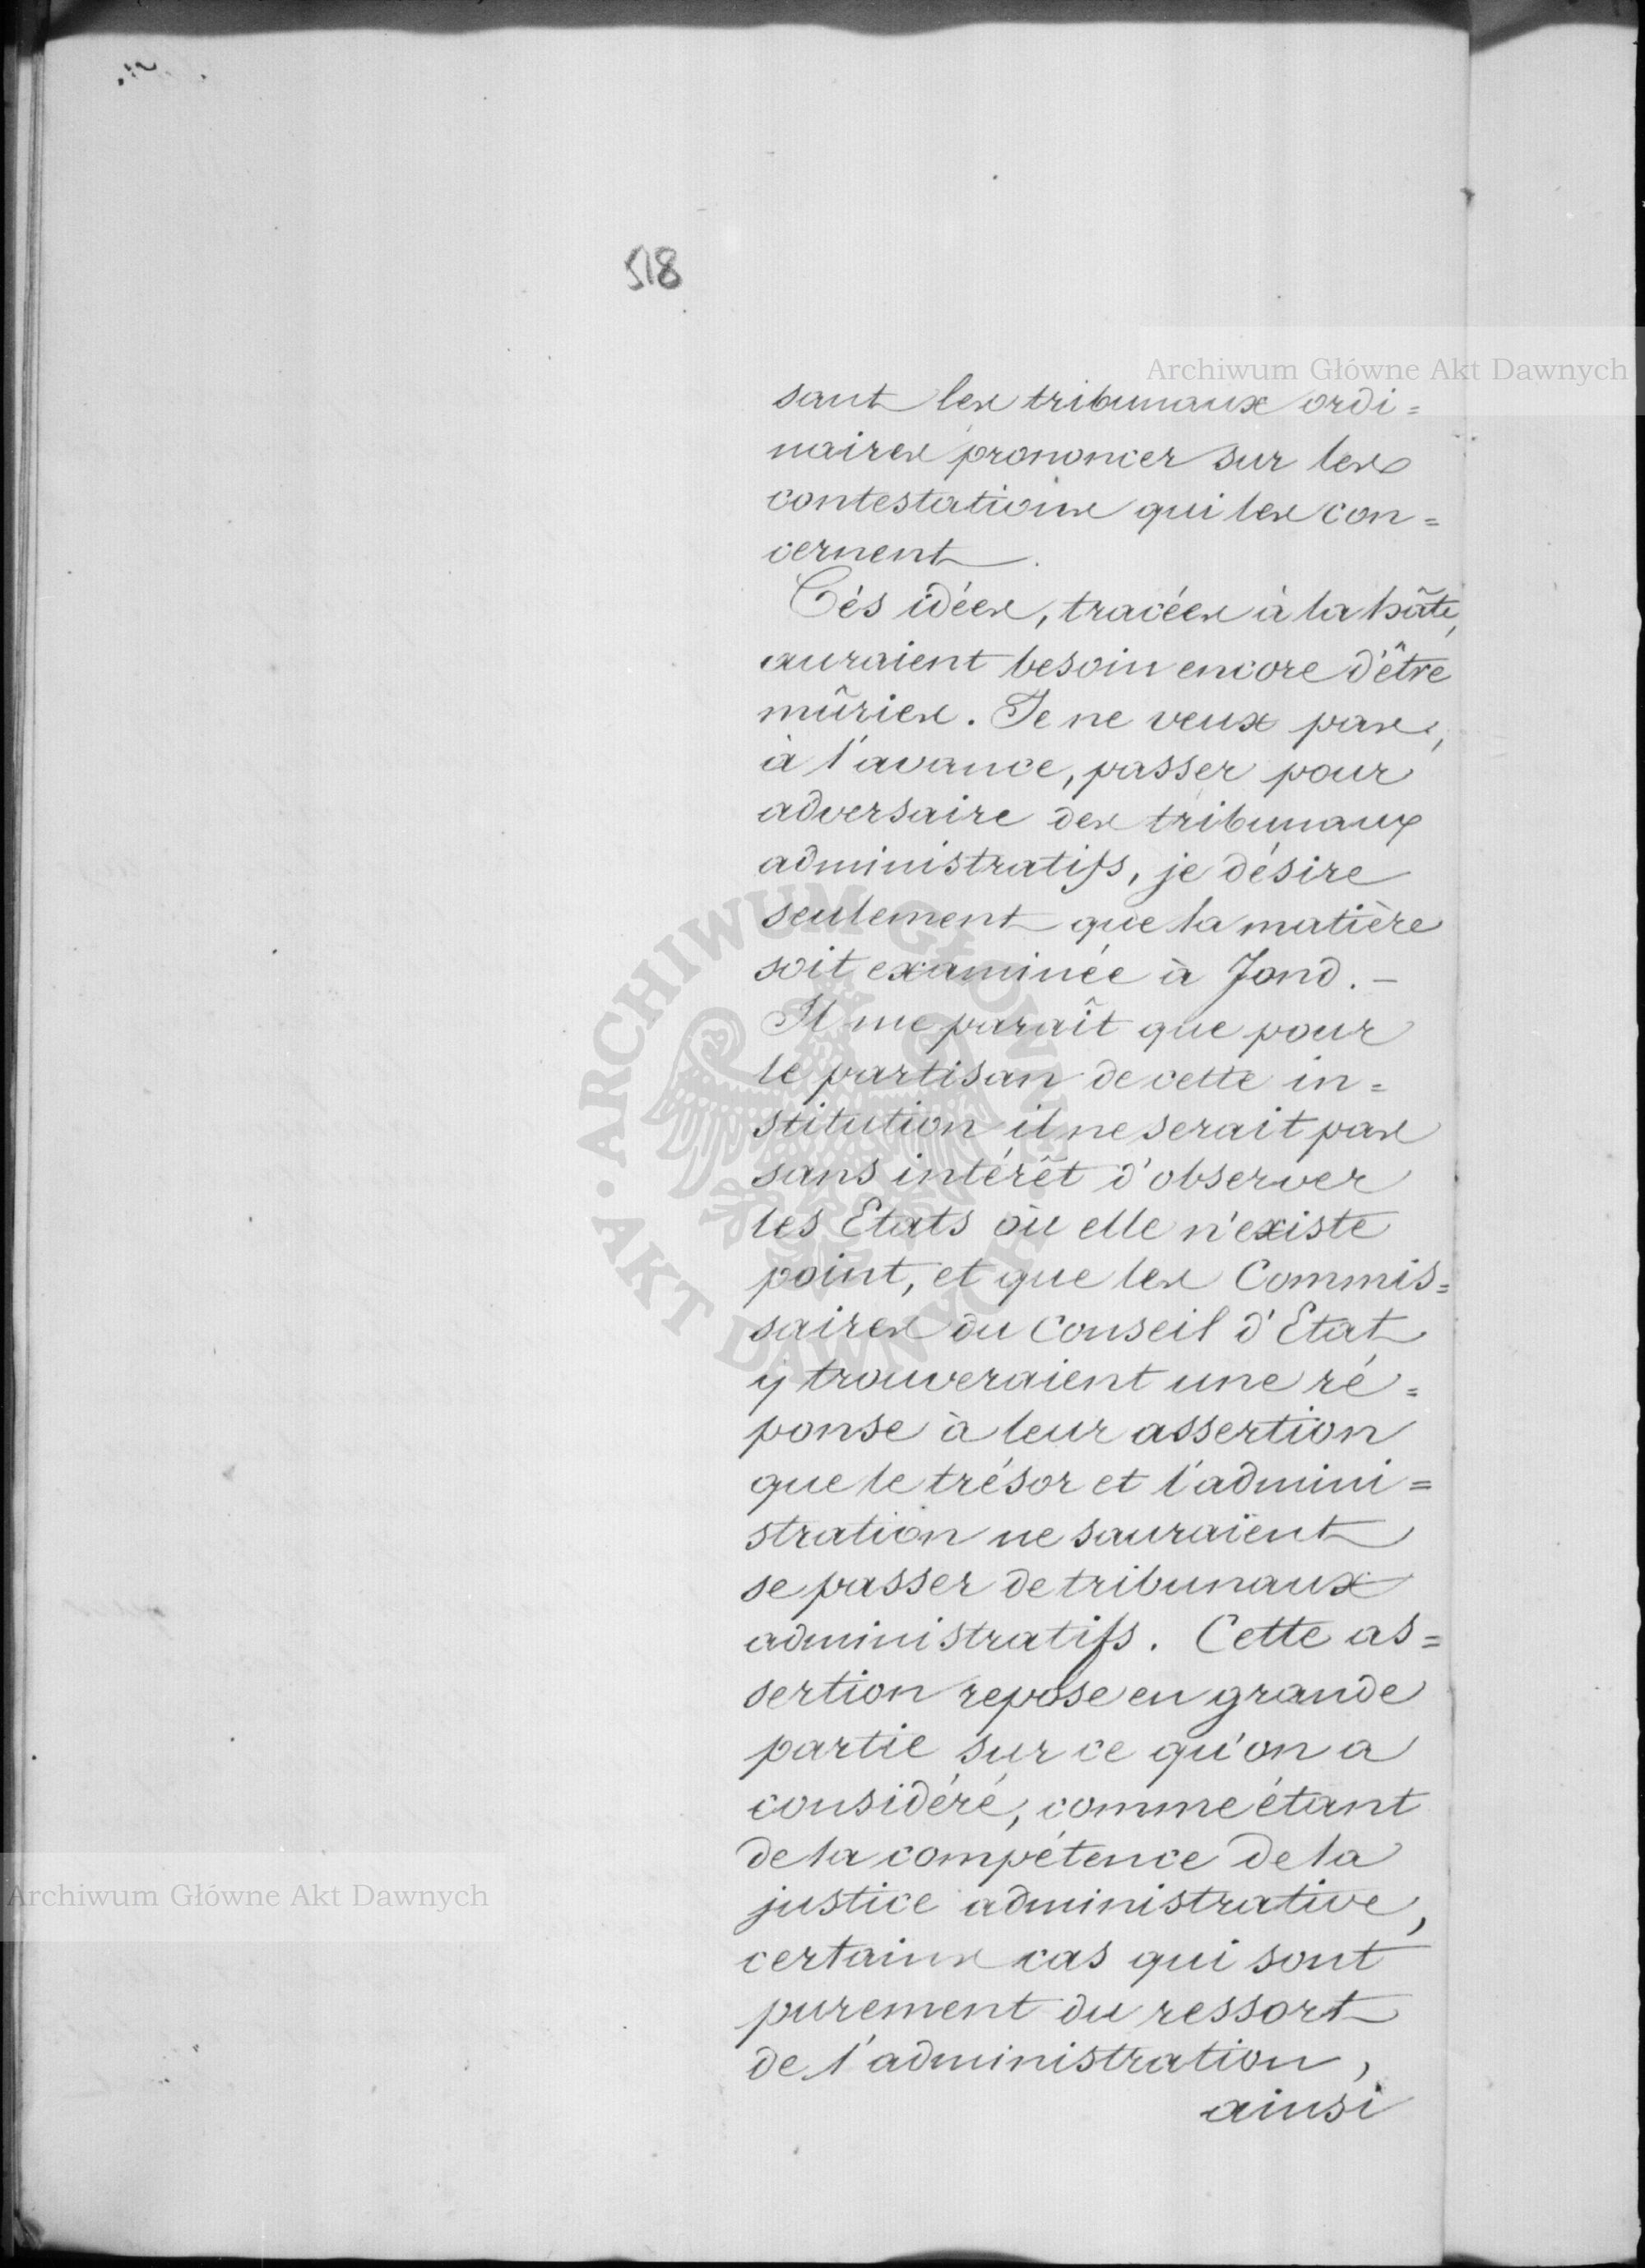 518
Archiwum Główne Akt Dawnych
sant les tribunaux ordi=
naires prononcer sur les
contestations qui les con=
cernent.
Cés idées, tracées à la hâte,
auraient besoin encore d'être
mûries. Je ne veux pas,
à l'avance, passer pour
adversaire des tribunaux
administratifs, je désire
seulement que la matière
soit examinée à fond. -
Il me paraît que pour
le partisan de cette in=
stitution il ne serait pas
sans intérêt d'observer
les Etats où elle n'existe
point, et que les Commis=
saires du Conseil d'Etat
y trouveraient une ré=
ponse à leur assertion
que le trésor et l'admini=
stration ne sauraient
se passer de tribunaux
administratifs. Cette as=
sertion repose en grande
partie sur ce qu'on a
considéré, comme étant
de la compétence de la
justice administrative,
certains cas qui sont
purement du ressort
de l'administration,
ainsi
ARCHIWUM GŁÓWNE · AKT DAWNYCH ·
Archiwum Główne Akt Dawnych